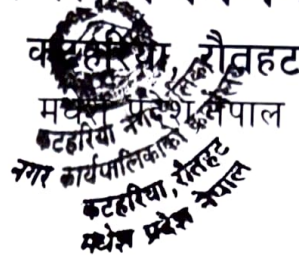 कटहरिया, रौतहट
मधेश प्रदेश नेपाल
कटहरिया नगरपालिका
नगर कार्यपालिकाको कार्यालय
कटहरिया, रौतहट
मधेश प्रदेश नेपाल